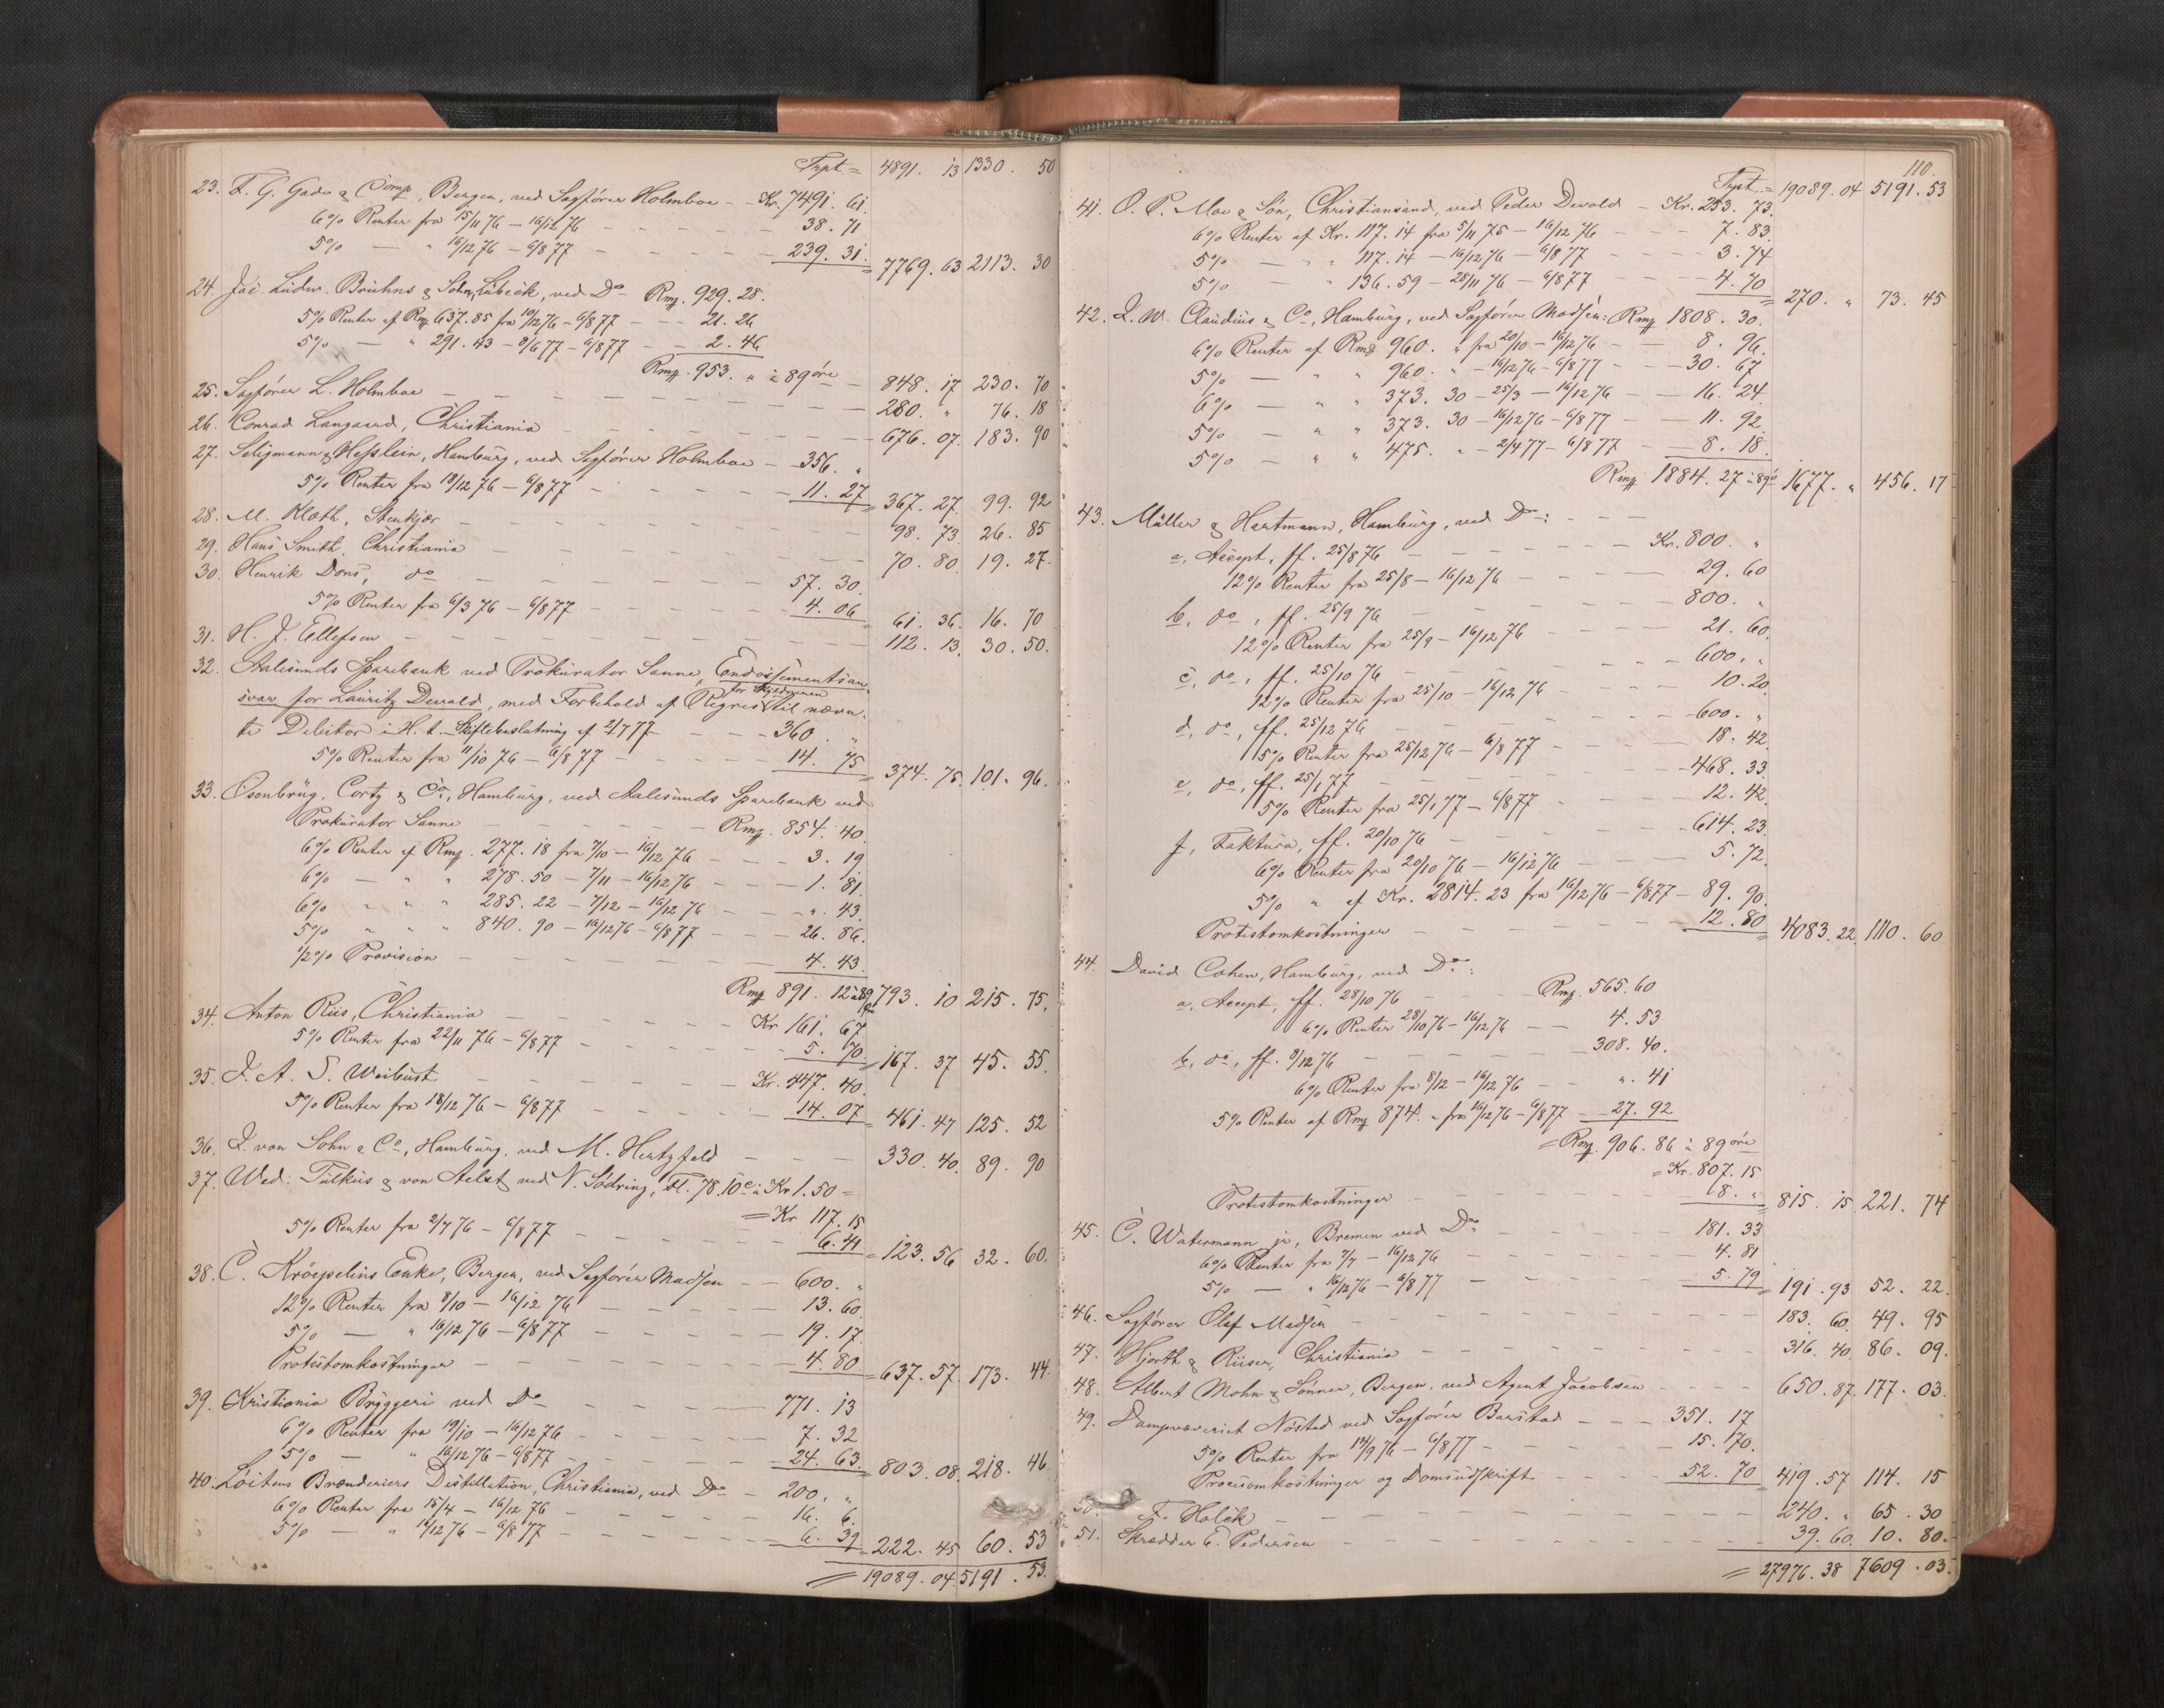 Trpt = 4891. 13 1330. 50
23. F. G. Gade & Comp, Bergen, ved Sagfører Holmboe - Kr. 7491. 61.
6% Renter fra 15/11 76 - 16/12 76 - - - 38. 71
5% — " 16/12 76 - 6/8 77 - - - 239. 31. = 7769. 63 2113. 30
24. Jac. Ludw. Bruhns & Sohn, Lübeck, ved Do Rmk. 929. 28.
5% Renter af Rmk 637. 85 fra 10/12 76 - 6/8 77 - - 21. 26
5% — " 291. 43 - 8/6 77 - 6/8 77 - - 2. 46
Rmk. 953. " à 89 øre - 848. 17 230. 70
25. Sagfører L. Holmboe - - - 280. " 76. 18
26. Conrad Langaard, Christiania - - - 676. 07. 183. 90
27. Seligmann & Hesslein, Hamburg, ved Sagfører Holmboe - 356. "
5% Renter fra 19/12 76 - 6/8 77 - - - 11. 27 = 367. 27. 99. 92
28. M. Klæth, Stenkjær - - - 98. 73. 26. 85
29. Hans Smith, Christiania - - - 70. 80. 19. 27.
30. Henrik Dons, do - - - 57. 30.
5% Renter fra 6/3 76 - 6/8 77 - - - 4. 06 = 61. 36. 16. 70
31. H. J. Ellefsen - - - 112. 13. 30. 50.
32. Aalesunds Sparebank ved Prokurator Sanne, Endossementsan-
svar for Lauritz Devold, med Forbehold af Regres for Kjedgenen til nævn-
te Debitor i H. t. Skiftebeslutning af 2/7 77 - - - 360. "
5% Renter fra 11/10 76 - 6/8 77 - - - 14. 75 = 374. 75. 101. 96.
33. Osenbrüg, Cortz & Co, Hamburg, ved Aalesunds Sparebank ved
Prokurator Sanne - - - Rmk. 854. 40.
6% Renter af Rmk. 277. 18 fra 7/10 - 16/12 76 - - - 3. 19
6% — " " 278. 50 - 7/11 - 16/12 76 - - - 1. 81.
6% " " " 285. 22 - 7/12 - 16/12 76 - - - ". 43.
5% " " " 840. 90 - 16/12 76 - 6/8 77 - - - 26. 86.
1/2% Provision - - - 4. 43.
Rmk 891. 12 à 89 øre 793. 10 215. 75.
34. Anton Riis, Christiania - - - Kr 161. 67
5% Renter fra 22/11 76 - 6/8 77 - - - 5. 70 = 167. 37 45. 55.
35. J. A. S. Weibust - - - Kr. 447. 40.
5% Renter fra 18/12 76 - 6/8 77 - - - 14. 07 = 461. 47 125. 52
36. J. von Sohn & Co, Hamburg, ved M. Hertzfeld - - - 330. 40. 89. 90
37. Wed. Tulkus & von Aelst ved N. Södring, Fl. 78.10 c. à Kr 1.50 =
= Kr 117. 15
5% Renter fra 2/7 76 - 6/8 77 - - - 6. 41 = 123. 56 32. 60.
38. C. Kröepelins Enke, Bergen, ved Sagfører Madsen - - 600. "
12% Renter fra 8/10 - 16/12 76 - - - 13. 60
5% — " 16/12 76 - 6/8 77 - - - 19. 17.
Protestomkostninger - - - 4. 80 = 637. 57. 173. 44.
39. Kristiania Bryggeri ved Do - - - 771. 13
6% Renter fra 19/10 - 16/12 76 - - - 7. 32
5% — " 16/12 76 - 6/8 77 - - - 24. 63. = 803. 08. 218. 46
40. Löitens Brænderiers Destillation, Christiania, ved Do - 200. "
6% Renter fra 15/4 - 16/12 76 - - - 16. 6.
5% — " 16/12 76 - 6/8 77 - - - 6. 39 = 222. 45 60. 53
= 19089. 04. 5191. 53.
110.
Trpt = 19089. 04 5191. 53
41. O. P. Moe & Søn, Christiansand, ved Peder Devold - Kr. 253. 73.
6% Renter af Kr. 117. 14 fra 5/11 75 - 16/12 76 - - - 7. 83.
5% — " " 117. 14 - 16/12 76 - 6/8 77 - - - 3. 74
5% — " 136. 59 - 28/11 76 - 6/8 77 - - - 4. 70 = 270. " 73. 45
42. J. W. Claudius & Co, Hamburg, ved Sagfører Madsen: Rmk 1808. 30.
6% Renter af Rmk 960. " fra 20/10 - 16/12 76 - - 8. 96.
5% — " " 960. " - 16/12 76 - 6/8 77 - - 30. 67
6% — " " 373. 30 - 25/3 - 16/12 76 - - 16. 24
5% — " " 373. 30 - 16/12 76 - 6/8 77 - - 11. 92.
5% — " " 475. " - 2/4 77 - 6/8 77 - - 8. 18.
Rmk 1884. 27 à 89 ø 1677. " 456. 17
43. Müller & Hartmann, Hamburg, ved Do:
a, Accept, ff. 25/8 76 - - - Kr. 800. "
12% Renter fra 25/8 - 16/12 76 - - - 29. 60
b, do, ff. 25/9 76 - - - 800. "
12% Renter fra 25/9 - 16/12 76 - - - 21. 60.
c, do, ff. 25/10 76 - - - 600. "
12% Renter fra 25/10 - 16/12 76 - - - 10. 20.
d, do, ff. 25/12 76 - - - 600. "
5% Renter fra 25/12 76 - 6/8 77 - - - 18. 42.
e, do, ff. 25/1 77 - - - 468. 33.
5% Renter fra 25/1 77 - 6/8 77 - - - 12. 42.
f, Faktura, ff. 20/10 76 - - - 614. 23.
6% Renter fra 20/10 76 - 16/12 76 - - - 5. 72.
5% " af Kr. 2814. 23 fra 16/12 76 - 6/8 77 - 89. 90.
Protestomkostninger - - - 12. 80 = 4083. 22. 1110. 60
44. David Cohen, Hamburg, ved Do:
a, Accept, ff. 28/10 76 - - Rmk. 565. 60
6% Renter 28/10 76 - 16/12 76 - - 4. 53
b, do, ff. 8/12 76 - - - 308. 40.
6% Renter fra 8/12 - 16/12 76 - - ". 41
5% Renter af Rmk 874. " fra 16/12 76 - 6/8 77 - 27. 92
= Rmk. 906. 86 à 89 øre
= Kr. 807. 15
Protestomkostninger - - - 8. " = 815. 15 221. 74
45. C. Watermann jr, Bremen ved Do - - - 181. 33
6% Renter fra 7/7 - 16/12 76 - - - 4. 81
5% — " 16/12 76 - 6/8 77 - - - 5. 79 = 191. 93 52. 22.
46. Sagfører Olaf Madsen - - - 183. 60. 49. 95
47. Hjorth & Riiser, Christiania - - - 316. 40. 86. 09.
48. Albert Mohn & Sønner, Bergen, ved Agent Jacobsen - - - 650. 87. 177. 03.
49. Dampvæveriet Nøsted ved Sagfører Barstad - - - 351. 17
5% Renter fra 14/9 76 - 6/8 77 - - - 15. 70.
Procesomkostninger og Domsudskrift - - - 52. 70 = 419. 57 114. 15
50. F. Holck - - - 240. " 65. 30
51. Skrædder E. Pedersen - - - 39. 60. 10. 80.
= 27976. 38 7609. 03.